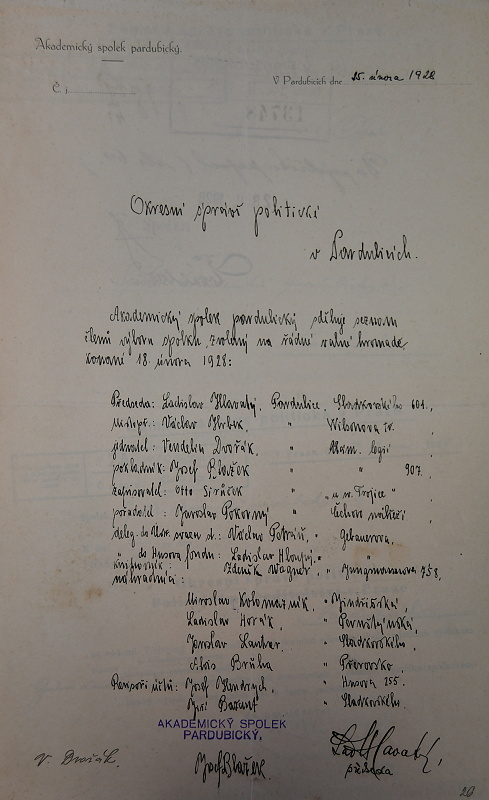 Akademický spolek pardubický.
Č j.
V Pardubicích dne 25. února 1928
Okresní správě politické
v Pardubicích.
Akademický spolek pardubický sděluje seznam
členů výboru spolku, zvolený na řádné valné hromadě
konané 18. února 1928:
Předseda: Ladislav Hlavatý, Pardubice, Sladkovského 601.,
místopř.: Václav Hrbek, " Wilsonova tř.
jednatel: Vendelín Dvořák, " Nám. legií
pokladník: Josef Blažek " " 907.
zapisovatel: Otto " "u sv. Trojice"
pořadatel: Jaroslav Pokorný " Čechovo nábřeží
deleg. do Ústř. svazu č. s.: Václav " Gebauerova,
" do Husova fondu: Ladislav " "
knihovník: Zdeněk Wagner, " Jungmannova 758,
náhradníci:
Miroslav Kolomazník, " Jindřišská,
Ladislav Horák, " Pernštýnská,
Jaroslav " Sladkovského,
Alois Brůha " Přerovsko,
Revisoři účtů: Josef " Husova 255.
Jiří " Sladkovského.
AKADEMICKÝ SPOLEK
PARDUBICKÝ.
V. Dvořák. Josef Blažek. Lad Hlavatý,
předseda
20